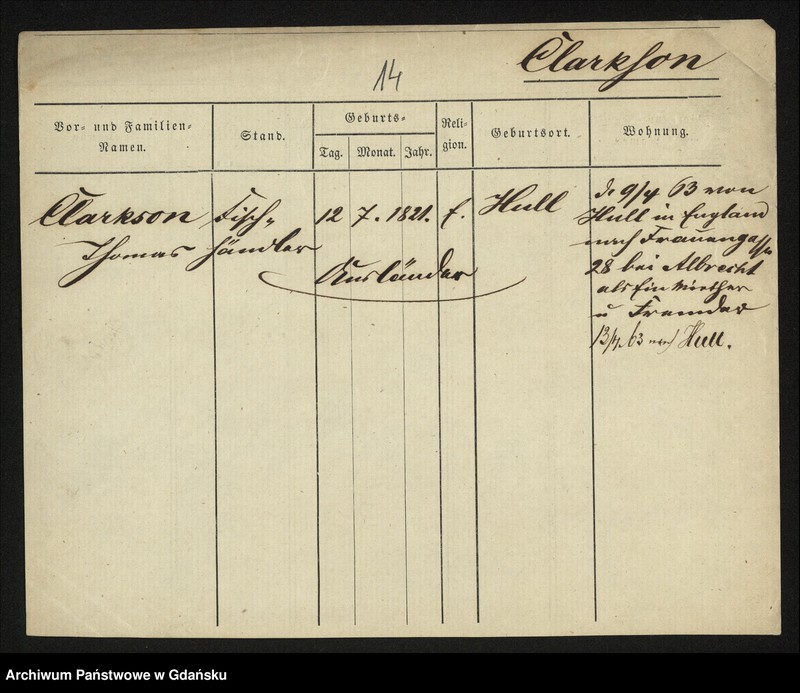 14
Clarkson
Vor- und Familien-
Namen.
Stand.
Geburts-
Tag.
Monat.
Jahr.
Reli-
gion.
Geburtsort.
Wohnung.
Clarkson Fisch-
Thomas händler
12 7. 1821. f. Hull
Ausländer
d. 9/4 63 von
Hull in England
nach Frauengasse
28 bei Albrecht
als Einwohner
u Fremder
13/4. 63 nach Hull.
Archiwum Państwowe w Gdańsku